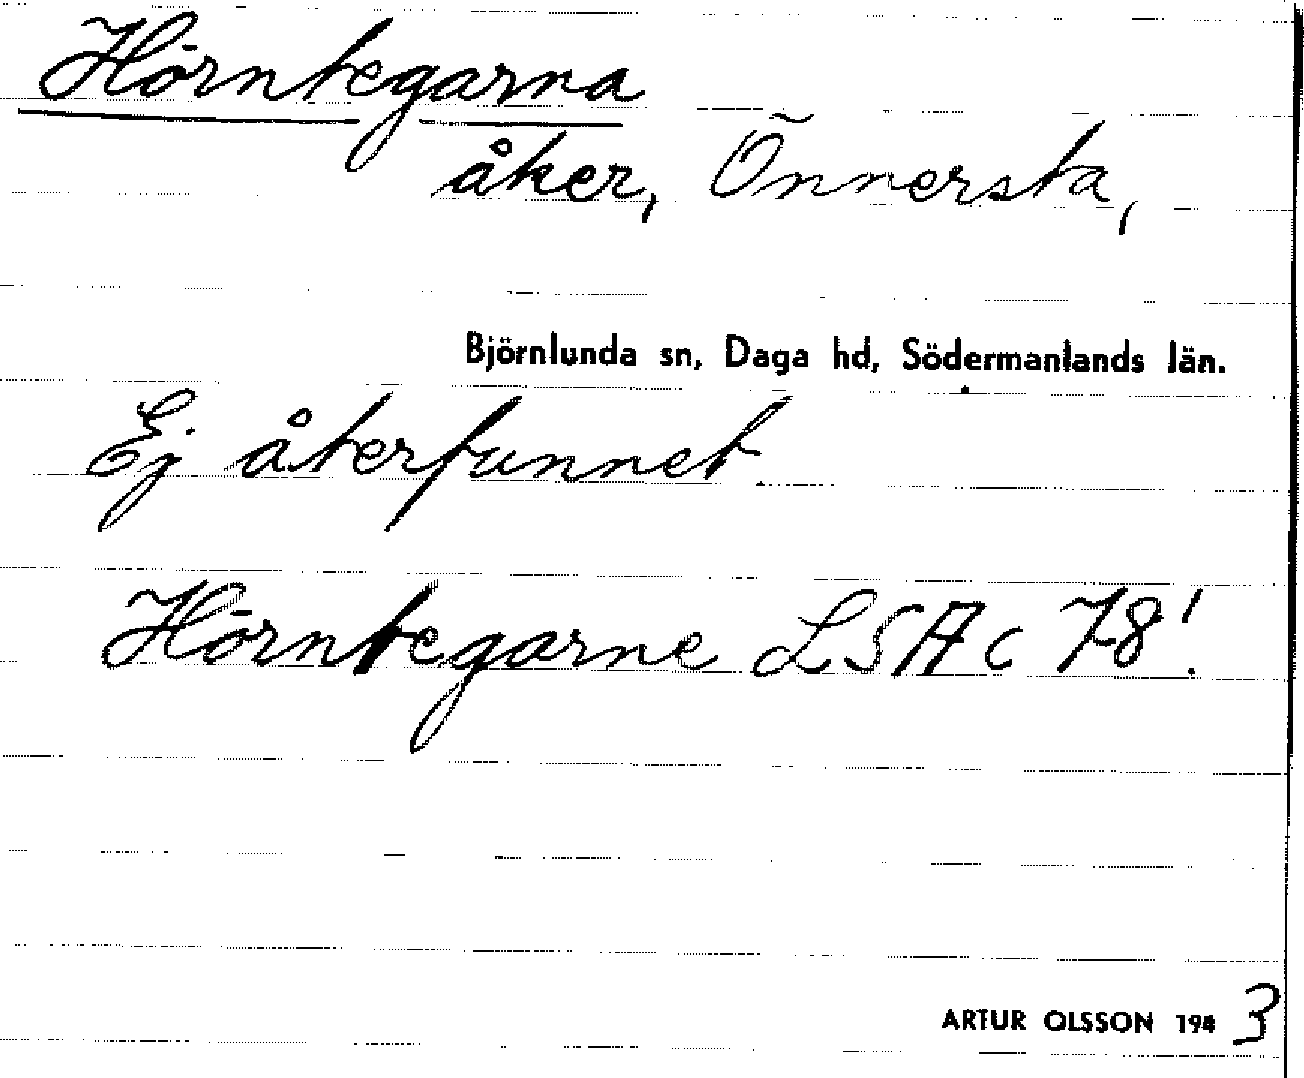 Hörntegarna
åker, Önnersta,
Björnlunda sn, Daga hd, Södermanlands län.
Ej återfunnet
Hörntegarne LSA c 78!
ARTUR OLSSON 1943